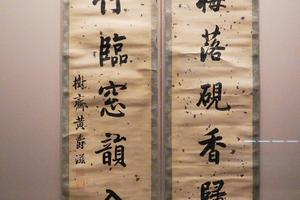 梅落硯香歸
竹臨窓韻入
樹齋黃爵滋